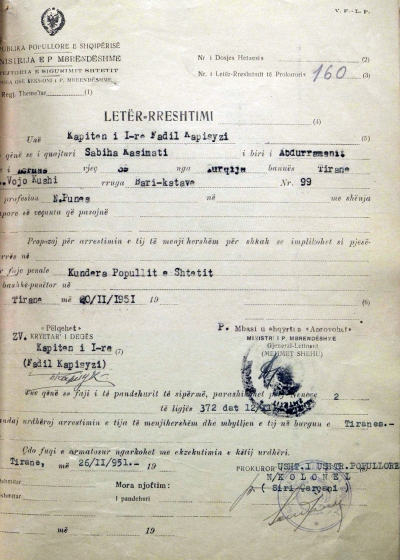 V. F.—L. P.
PUBLIKA POPULLORE E SHQIPËRISË
NISTRIJA E P. MBRENDËSHME
E SIGURIMIT SHTETIT
Regj. Themeltar (1)
Nr. i Dosjes Hetuesis (2)
Nr. i Letër-Rreshtimit të Prokuroris 160 (3)
LETËR-RRESHTIMI
(4)
Unë Kapiten i I-re Fadil Kapisyzi (5)
qënë se i quajturi Sabiha Kasimati i biri i Abdurramanit
vjeç nga banues Tirane
Vojo Kushi rruga Bari-kstave Nr. 99
profesion N.Punes në me shënja
pore së veçanta që pasojnë
Propozoj për arrestimin e tij të menjihershëm për shkak se implikohet si pjesë-
rrës në
faje penale Kundera Popullit e Shtetit
bashkë-punëtor në
Tirane më 20/II/1951 19 (6)
"Pëlqehet"
ZV. KRYETAR' I DEGËS
Kapiten i I-re (7)
(Fadil Kapisyzi)
P. Mbasi u shqyrtua "Aprovohet"
MINISTRI I P. MBRENDËSHME
Gjeneral-Lejtnant
(MEHMET SHEHU)
qënë se faji i të pandehurit të sipërmë, parashihet prej 2
të ligjës 372 dat 12/
urdhëroj arrestimin e tija të menjihershëm dhe mbylljen e tij në burgun e Tiranes.—
Çdo fuqi e armatosur ngarkohet me ekzekutimin e këtij urdhëri.
Tirane, më 26/II/951.— 19
PROKUROR USHT. I USHTR. POPULLORE
N/KOLONEL
( Siri Çarçani )
Mora njoftim:
I pandehuri
më 19